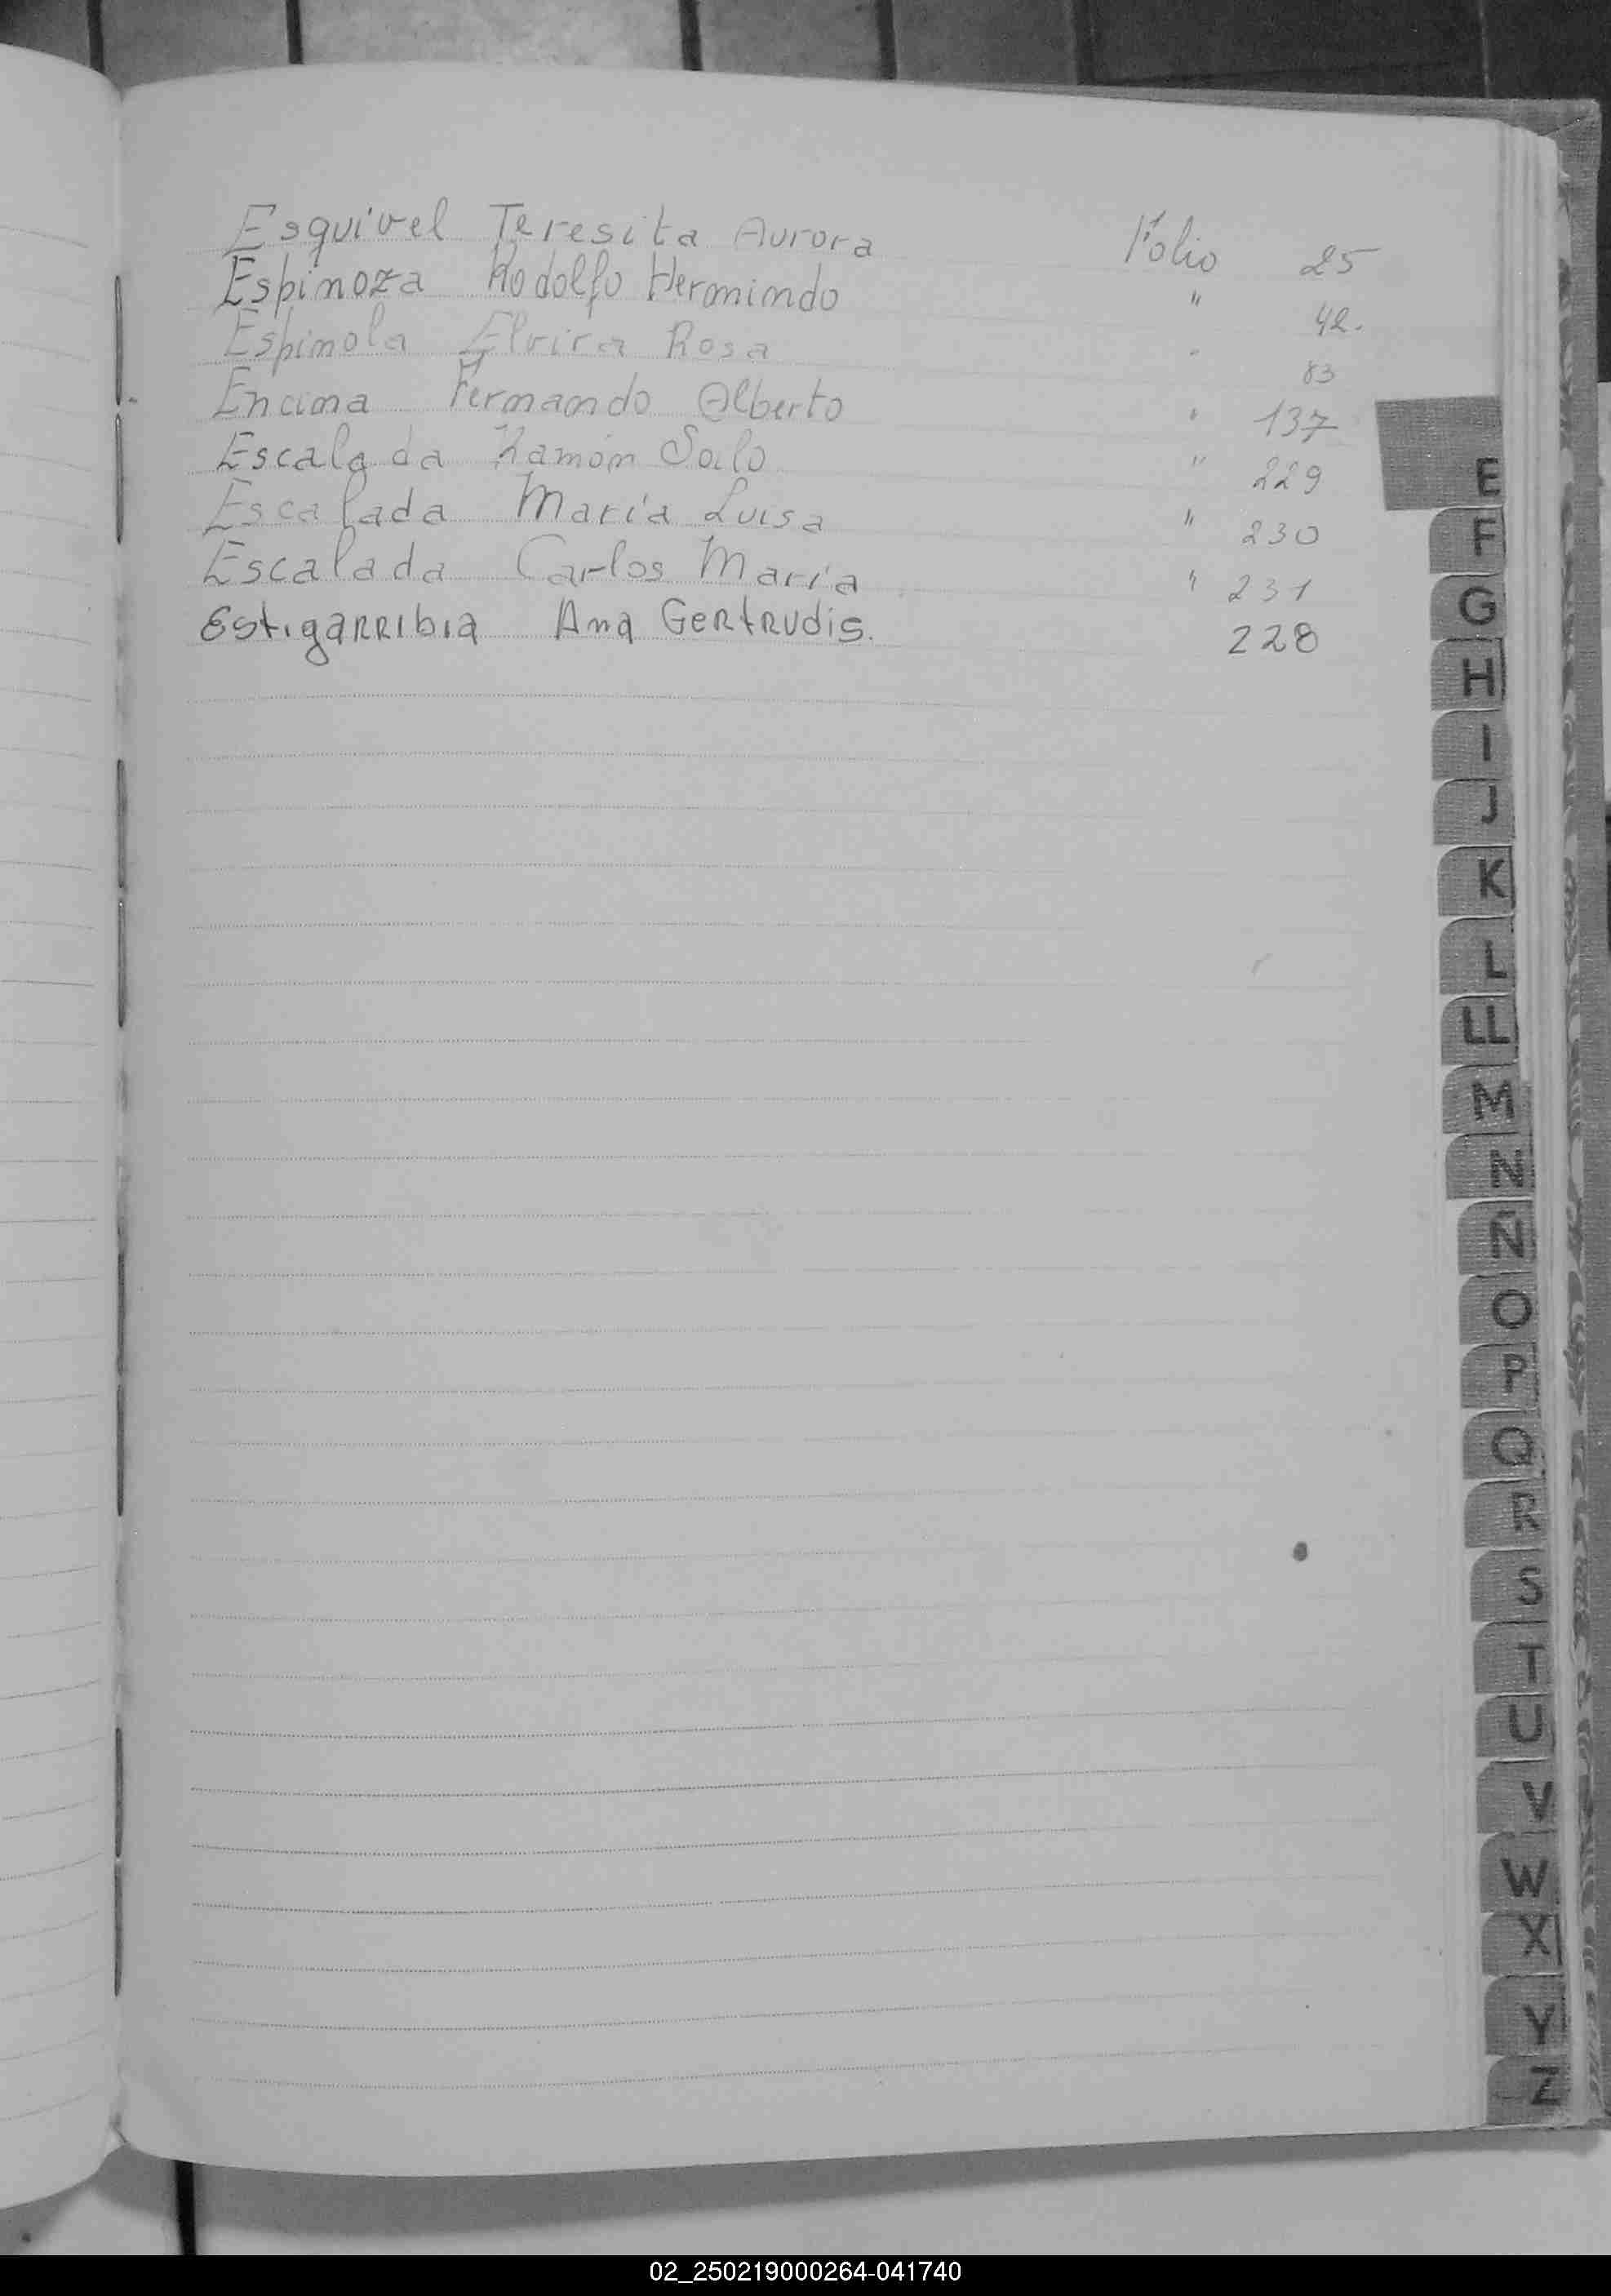 Esquivel Teresita Aurora Folio 25
Espinoza Rodolfo Hermindo " 42.
Espinola Elvira Rosa " 83
Encina Fernando Alberto " 137
Escalada Ramón " 229
Escalada María Luisa " 230
Escalada Carlos María " 231
Estigarribia Ana Gertrudis. 228
E
F
G
H
I
J
K
L
LL
M
N
Ñ
O
P
Q
R
S
T
U
V
W
X
Y
Z
02_250219000264-041740